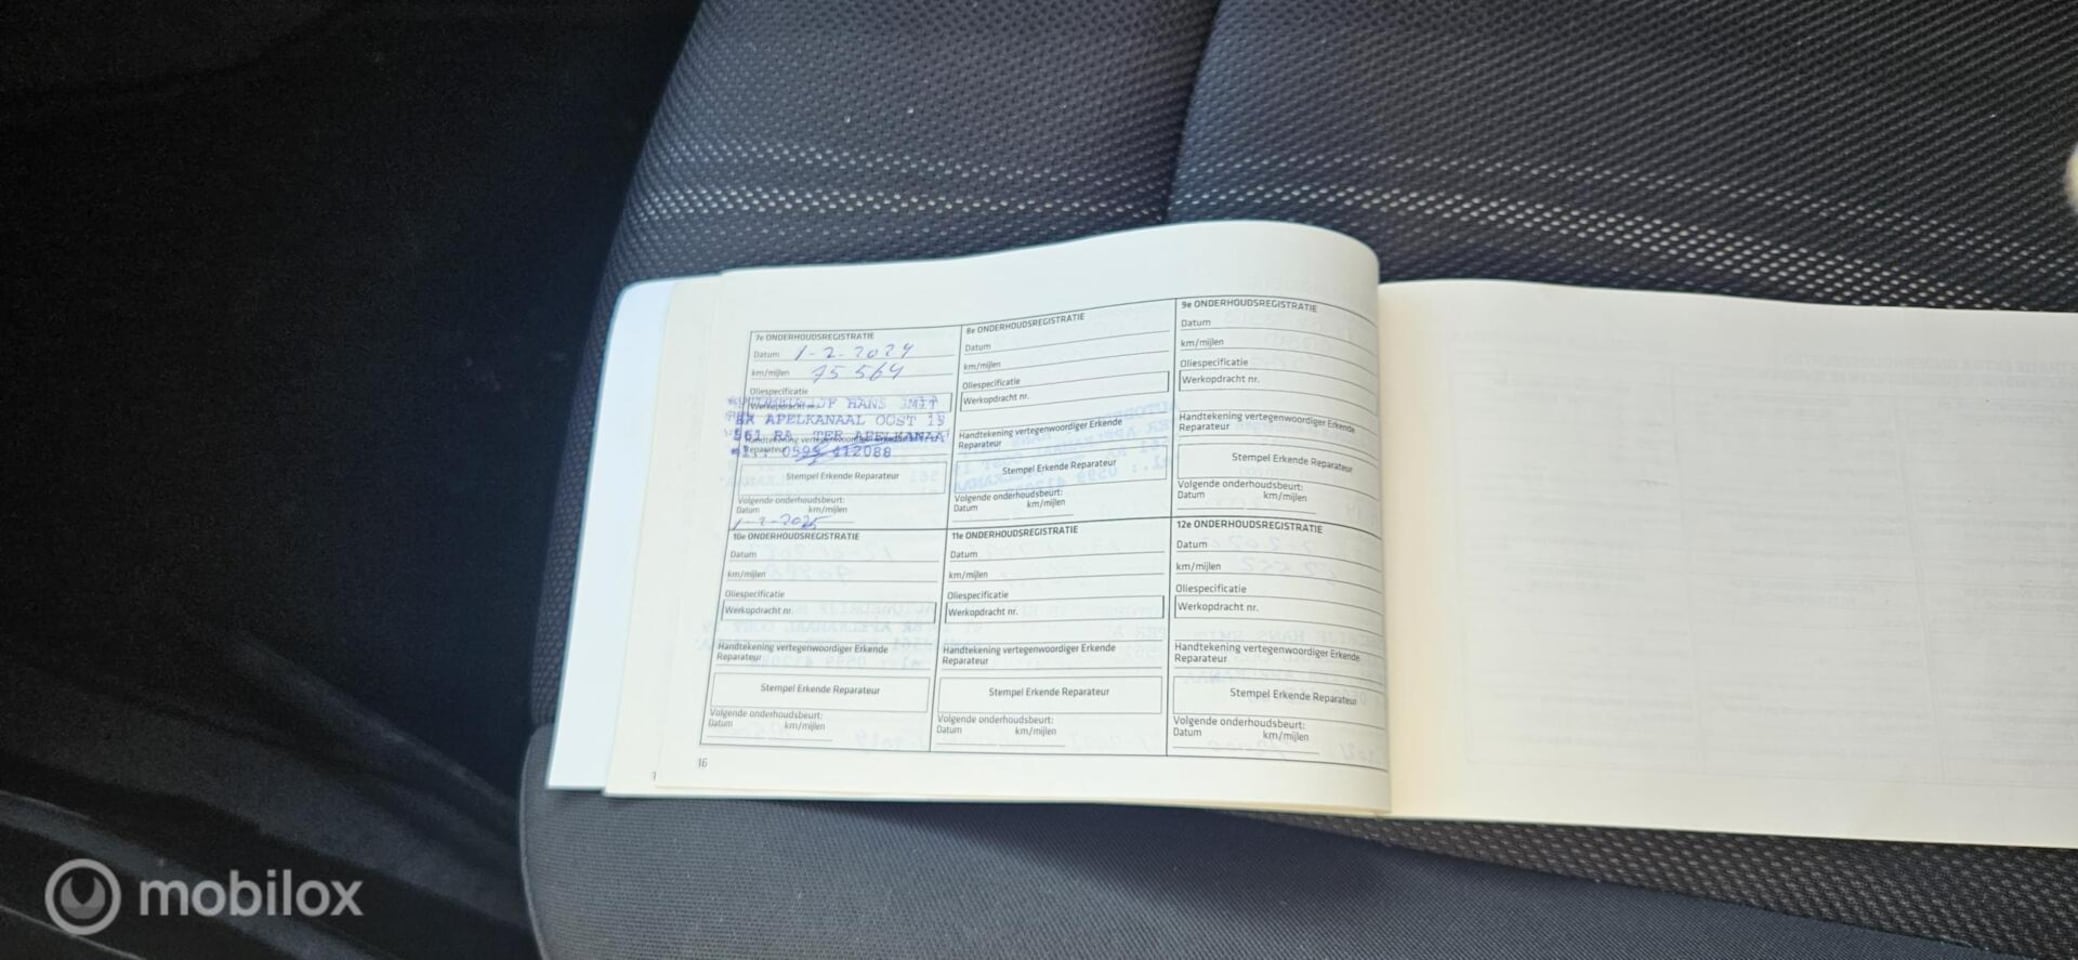 7e ONDERHOUDSREGISTRATIE
Datum 1-2-2024
km/mijlen 75 564
Oliespecificatie
Werkopdracht nr.
HANS SMIT
APELKANAAL OOST 19
TER APELKANAA
0599 412088
Handtekening vertegenwoordiger Erkende
Reparateur
Stempel Erkende Reparateur
Volgende onderhoudsbeurt:
Datum km/mijlen
1-2-2025
8e ONDERHOUDSREGISTRATIE
Datum
km/mijlen
Oliespecificatie
Werkopdracht nr.
Handtekening vertegenwoordiger Erkende
Reparateur
Stempel Erkende Reparateur
Volgende onderhoudsbeurt:
Datum km/mijlen
9e ONDERHOUDSREGISTRATIE
Datum
km/mijlen
Oliespecificatie
Werkopdracht nr.
Handtekening vertegenwoordiger Erkende
Reparateur
Stempel Erkende Reparateur
Volgende onderhoudsbeurt:
Datum km/mijlen
10e ONDERHOUDSREGISTRATIE
Datum
km/mijlen
Oliespecificatie
Werkopdracht nr.
Handtekening vertegenwoordiger Erkende
Reparateur
Stempel Erkende Reparateur
Volgende onderhoudsbeurt:
Datum km/mijlen
11e ONDERHOUDSREGISTRATIE
Datum
km/mijlen
Oliespecificatie
Werkopdracht nr.
Handtekening vertegenwoordiger Erkende
Reparateur
Stempel Erkende Reparateur
Volgende onderhoudsbeurt:
Datum km/mijlen
12e ONDERHOUDSREGISTRATIE
Datum
km/mijlen
Oliespecificatie
Werkopdracht nr.
Handtekening vertegenwoordiger Erkende
Reparateur
Stempel Erkende Reparateur
Volgende onderhoudsbeurt:
Datum km/mijlen
16
mobilox